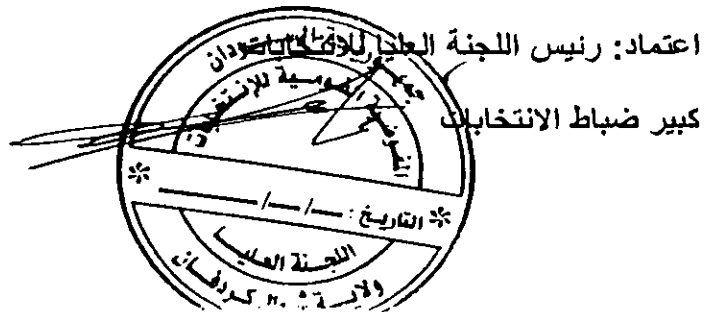 اعتماد: رئيس اللجنة العليا للانتخابات
كبير ضباط الانتخابات
جمهورية السودان
المفوضية القومية للإنتخابات
التاريخ: __/__/____
اللجنة العليا
ولاية ش. كردفان